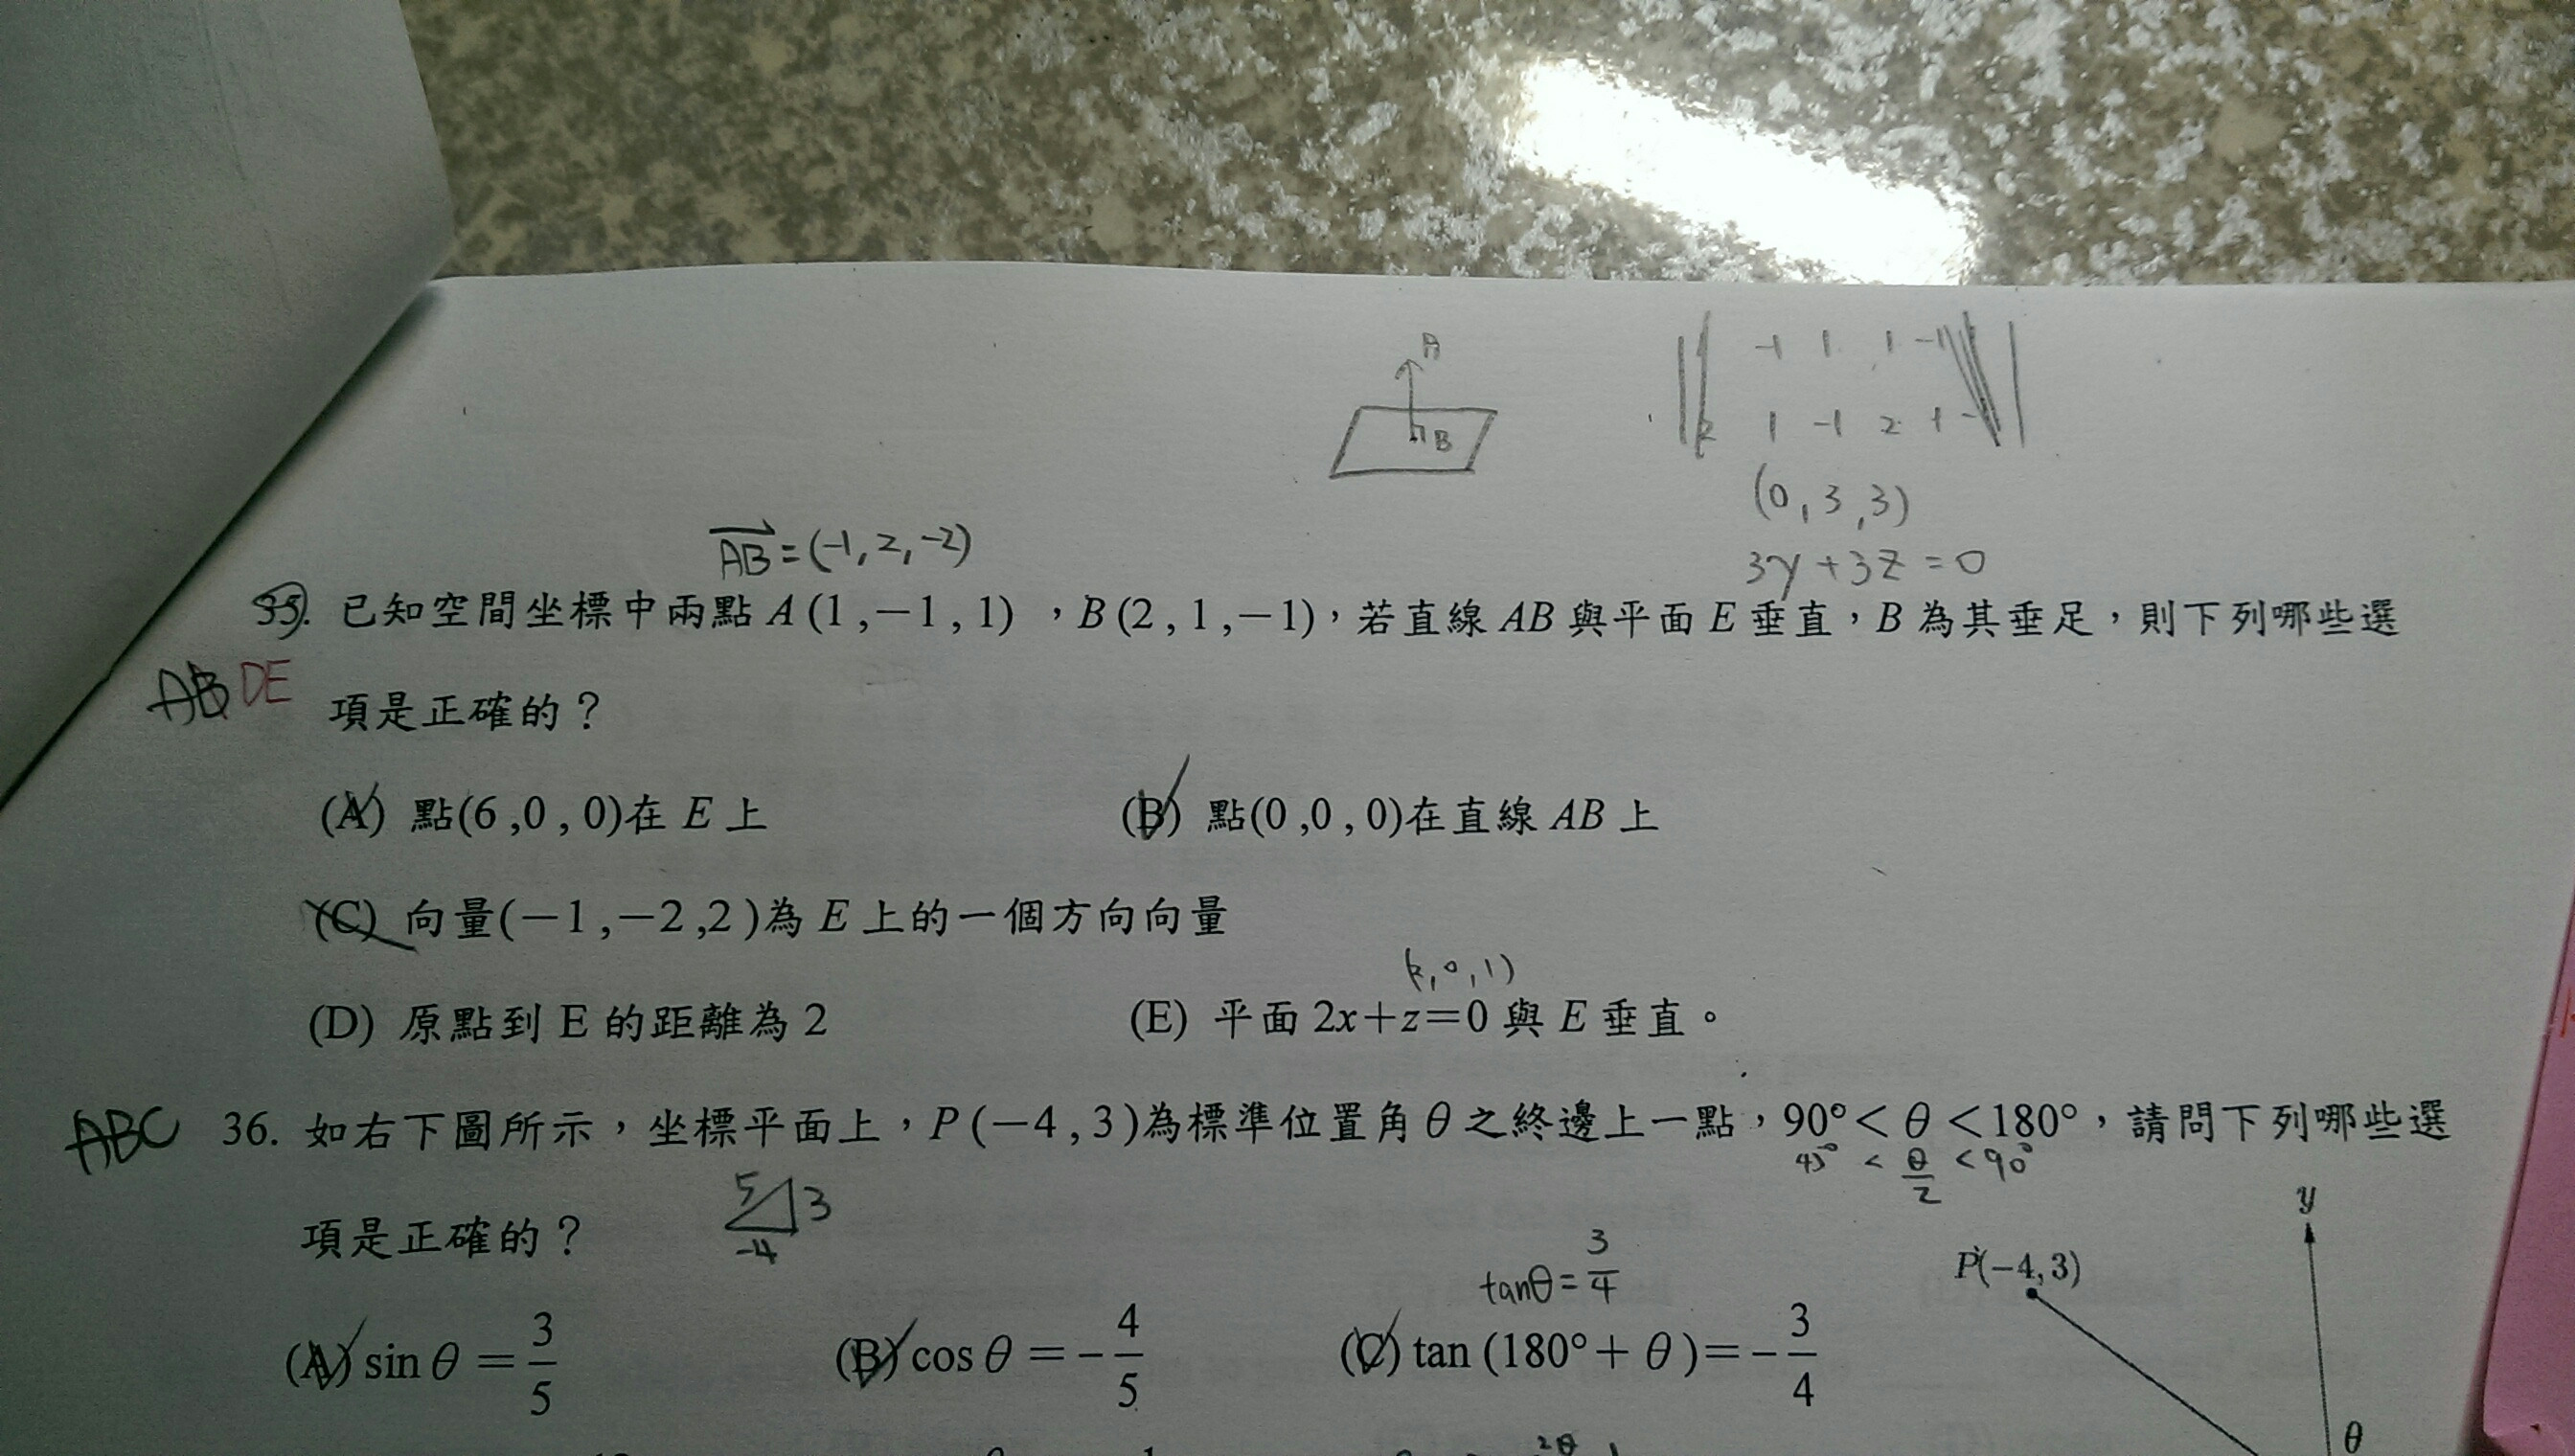 A
B
-1 1 1 -1
2 1 -1 2 1
(0,3,3)
3y+3z=0
AB=(-1,2,-2)
35. 已知空間坐標中兩點A(1,-1,1),B(2,1,-1),若直線AB與平面E垂直,B為其垂足,則下列哪些選
ABDE
項是正確的?
(A) 點(6,0,0)在E上 (B) 點(0,0,0)在直線AB上
(C) 向量(-1,-2,2)為E上的一個方向向量
(2,0,1)
(D) 原點到E的距離為2 (E) 平面2x+z=0與E垂直。
ABC 36. 如右下圖所示,坐標平面上,P(-4,3)為標準位置角θ之終邊上一點,90°<θ<180°,請問下列哪些選
45°<θ/2<90°
項是正確的?
5 3
-4
y
tanθ=3/4
P(-4,3)
(A) sinθ=3/5 (B) cosθ=-4/5 (C) tan(180°+θ)=-3/4
θ